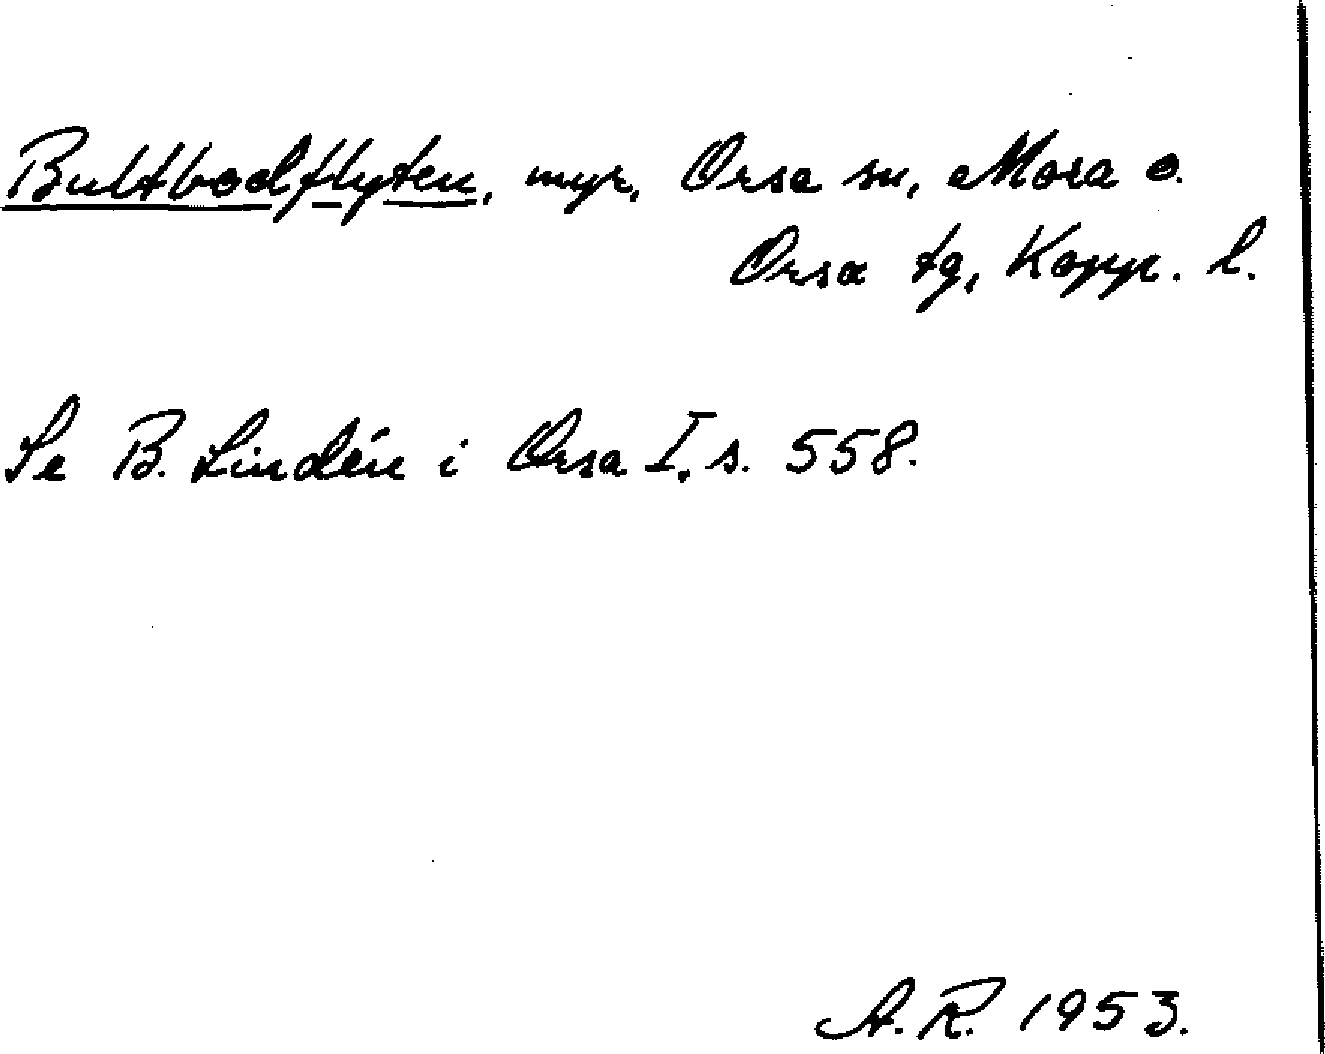 Bultbodflyten, myr, Orsa sn, Mora o.
Orsa tg, Kopp. l.
Se B. Lindén i Orsa I, s. 558.
A. R. 1953.